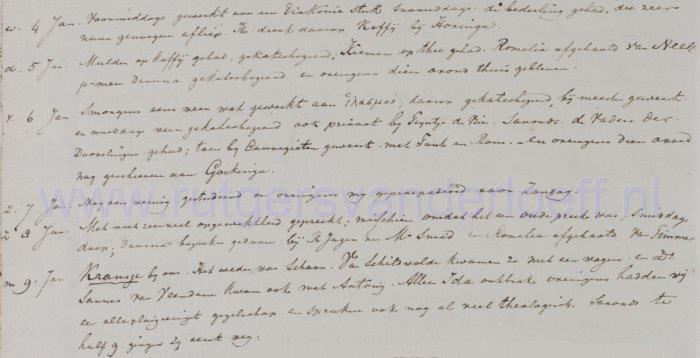 w. 4 Jan. Voormiddags gewerkt aan een Diakonie stuk Snamiddags de bedeeling gehad, die zeer
naar genoegen afliep. Ik dronk daarop Koffij bij Honinga.
d. 5 Jan. Mulder op koffij gehad, gekatechezeerd, Kremer op thee gehad. Romelia afgehaald van
daarna gekatechezeerd en overigens dien avond thuis gebleven.
v. 6 Jan. Smorgens eens weer wat gewerkt aan daarop gekatechezeerd, bij gewerkt
en smiddag weer gekatechezeerd ook privaat bij de Vrie. Savonds de Vaders der
Doorelingen gehad; toen bij Cannegieter geweest met Tant en Rom. en overigens dien avond
nog geschreven aan Gockinga.
Z. 7 Jan. Nog een weinig gestudeerd en overigens mij geprepareerd voor Zondag.
Z 8 Jan. Met niet zeer veel opgewektheid gepreekt; misschien omdat het een oude preek was, Smiddags
doop; daarna bezoeken gedaan bij R Jagen en Mr Smid en Romelia afgehaald van Timmer
m 9. Jan. Kransje bij ons. Het weder was schoon. Van Schildwolde kwamen ze met een wagen. en Ds
Sannes van Veendam kwam ook met Antonij. Alleen Ida ontbrak overigens hadden wij
ee allerplaizierigst gezelschap en spraken ook nog al veel theologisch. Savonds te
half 9 gingen zij eerst weg.
www.rutgersvanderloeff.nl